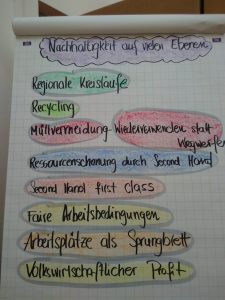 Nachhaltigkeit auf vielen Ebenen
Regionale Kreisläufe
Recycling
Müllvermeidung - Wiederverwenden statt
Wegwerfen
Ressourcenschonung durch Second Hand
Second Hand first class
Faire Arbeitsbedingungen
Arbeitsplätze als Sprungbrett
Volkswirtschaftlicher Profit